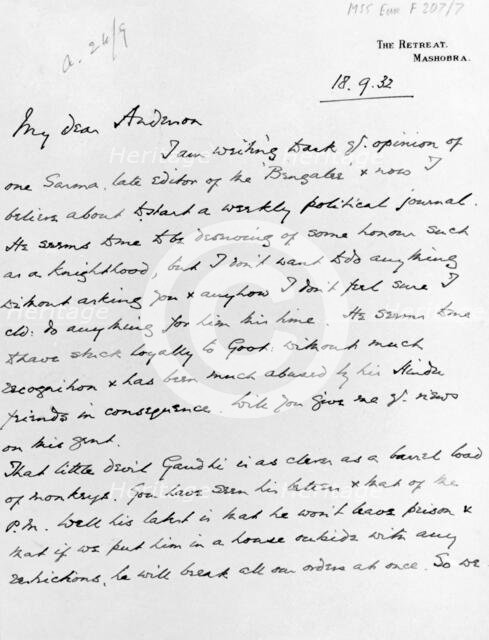 MSS Eur F 207/7
a. 24/9
THE RETREAT.
MASHOBRA.
18.9.32
My dear Anderson
I am writing to ask yr. opinion of
one Sarma, late Editor of the 'Bengalee' & now I
believe about to start a weekly political journal.
He seems to me to be deserving of some honour such
as a Knighthood, but I don't want to do anything
without asking you & anyhow I don't feel sure I
cld: do anything for him this time. He seems to me
to have stuck loyally to Govt: without much
recognition & has been much abused by his Hindu
friends in consequence. Will you give me yr. views
on this gent.
That little devil Gandhi is as clever as a barrel load
of monkeys. You have seen his letters & that of the
P.M. Well his latest is that he won't leave prison &
that if we put him in a house outside with any
restrictions, he will break all our orders at once. So we